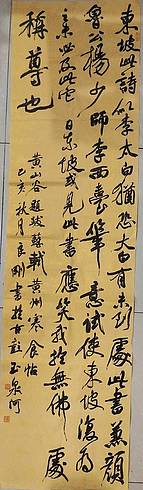 東坡此詩似李太白猶恐太白有未到處此書兼顏
魯公楊少師李西臺筆意試使東坡復為
之未必及此它日東坡或見此書應笑我於無佛處
稱尊也
黄山谷題跋蘇軾黄州寒食帖
己亥秋月良剛書於古玉泉河